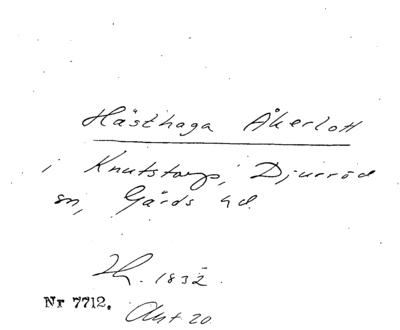 Hästhaga Åkerlott
i Knutstorp, Djurröd
sn, Gärds hd.
1832
Nr 7712.
Akt 20.